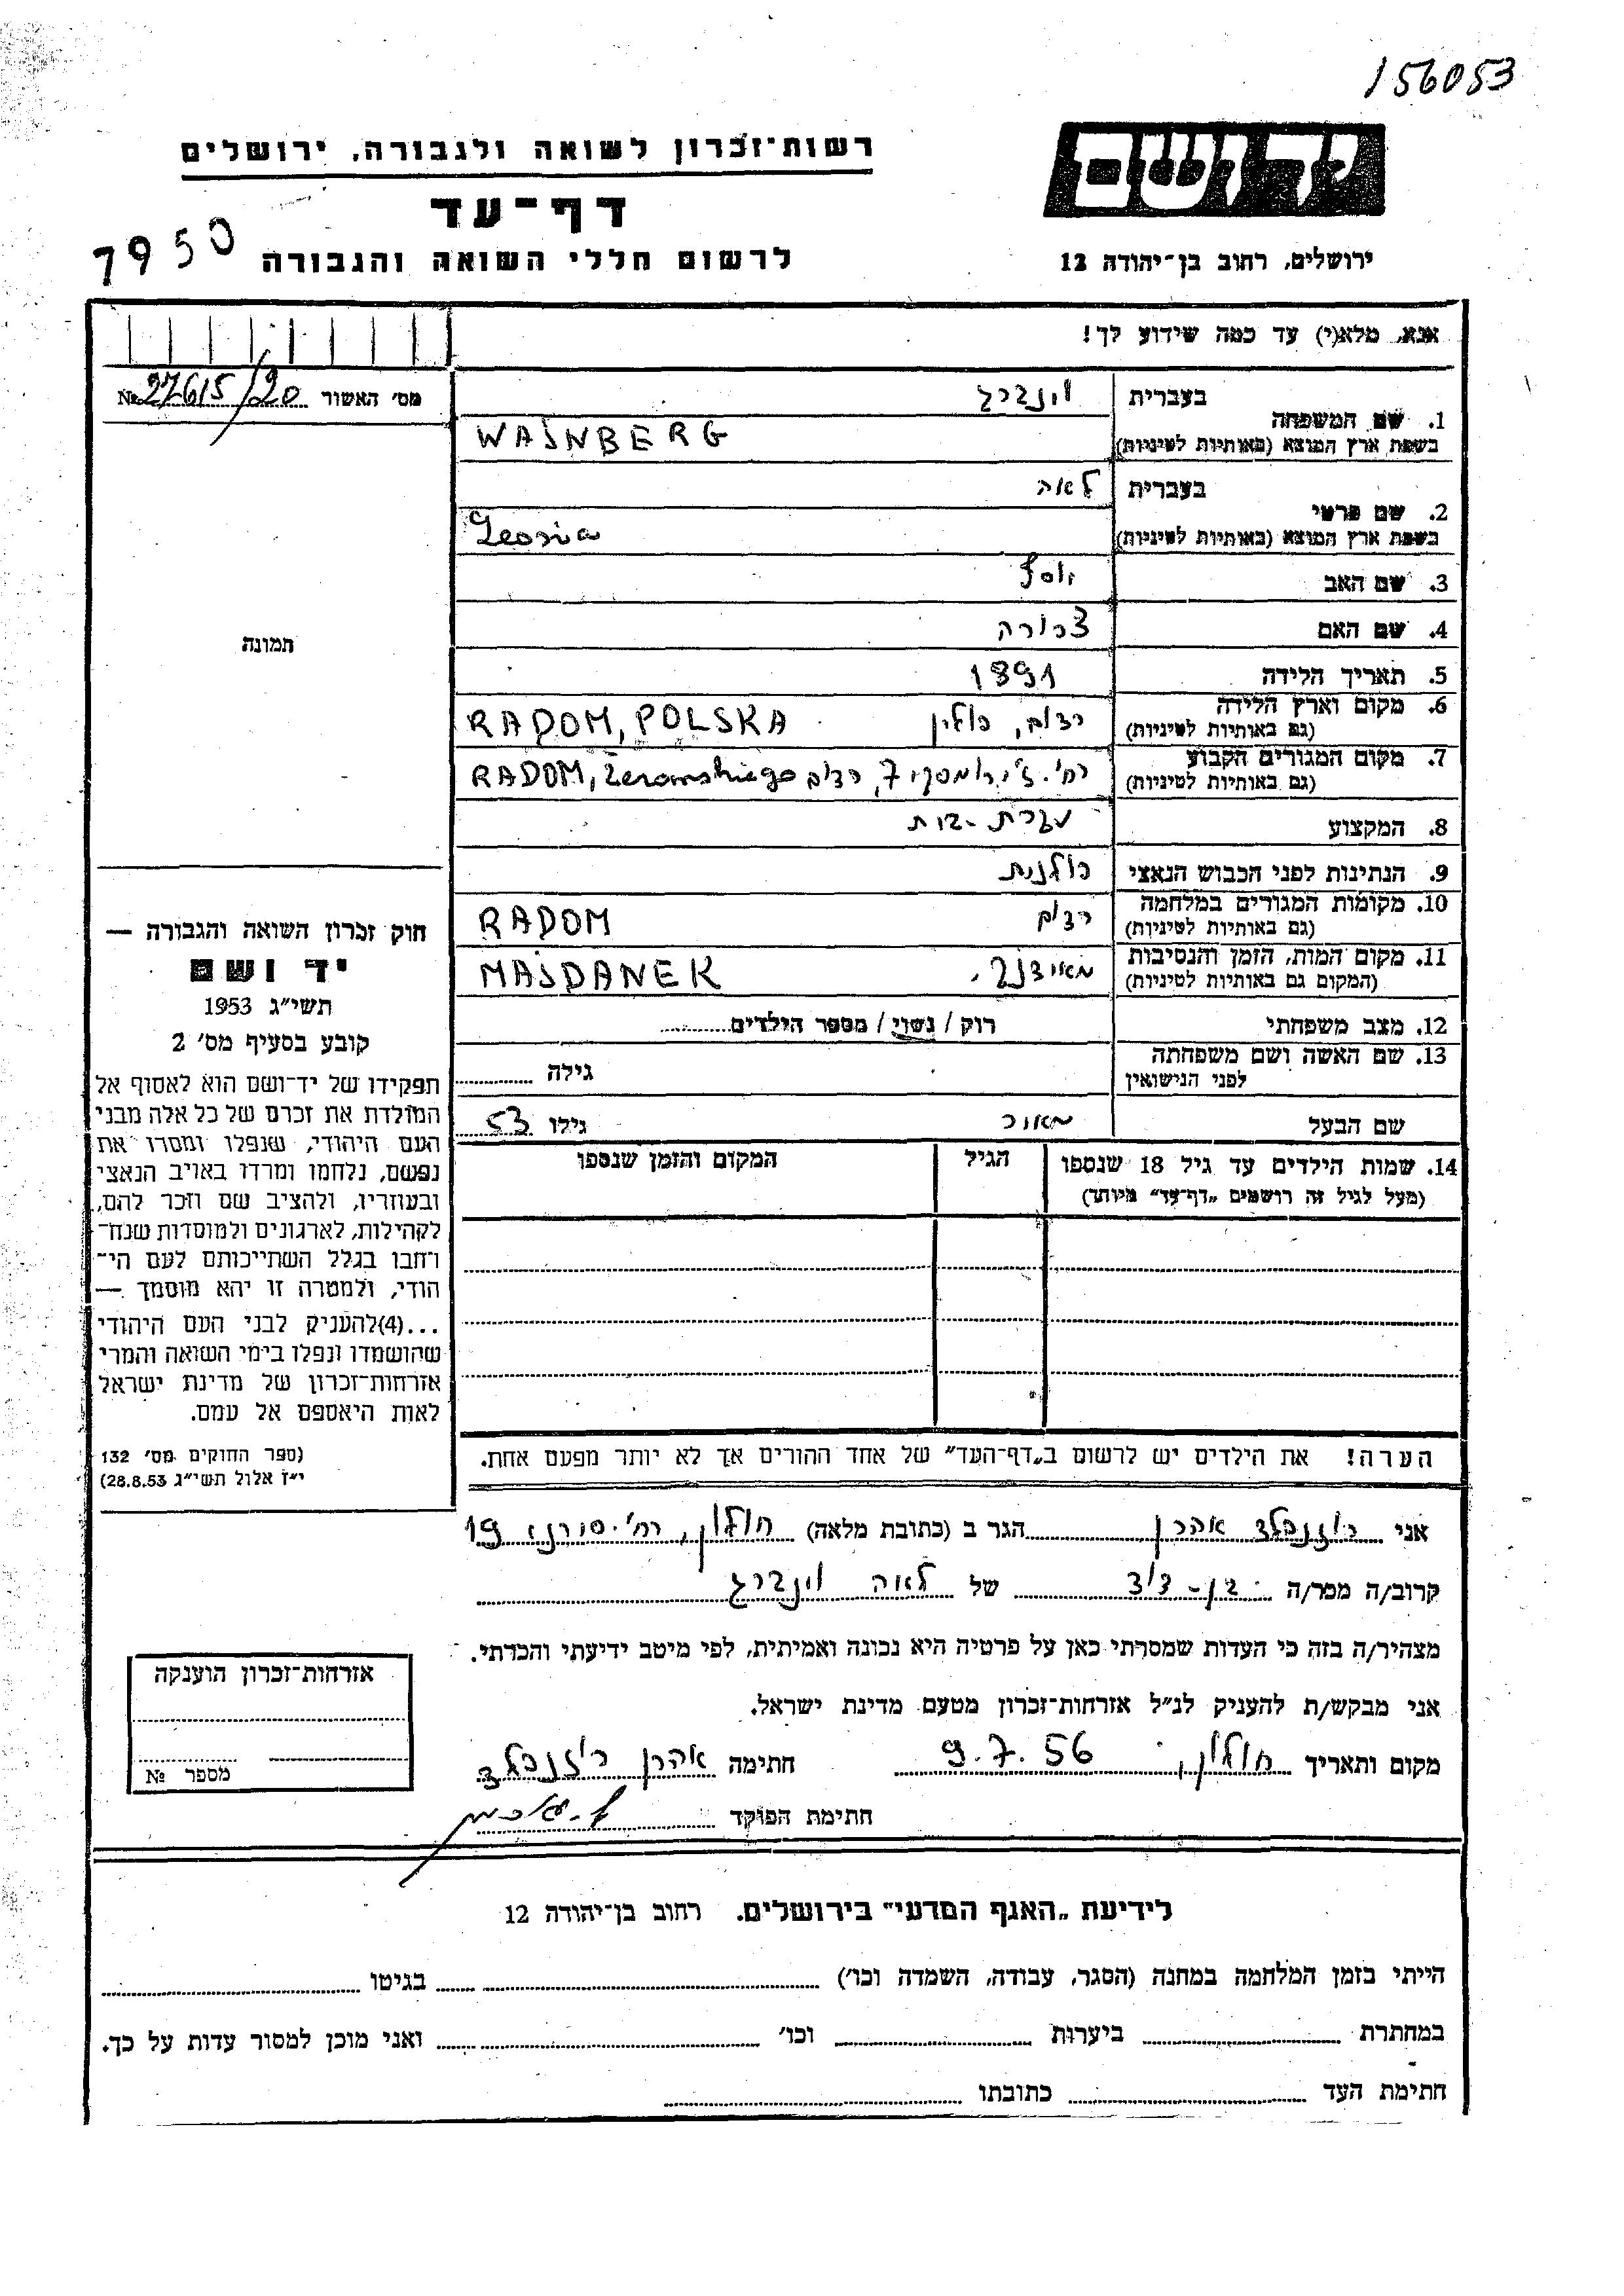 156053
רשות־זכרון לשואה ולגבורה, ירושלים
ידושם
דף־עד
7950
לרשום חללי השואה והגבורה
ירושלים, רחוב בן־יהודה 12
אנא, מלא(י) עד כמה שידוע לך!
מס׳ האשור 27615/20 №
1. שם המשפחה
בעברית וינברג
בשפת ארץ המוצא (באותיות לטיניות) WAJNBERG
2. שם פרטי
בעברית לאה
בשפת ארץ המוצא (באותיות לטיניות) Leosia
3. שם האב יוסף
4. שם האם צפורה
5. תאריך הלידה 1891
6. מקום וארץ הלידה (גם באותיות לטיניות) רדום, פולין RADOM, POLSKA
7. מקום המגורים הקבוע (גם באותיות לטיניות) רח׳. ז׳ירומסקי 7, רדום RADOM, Żeromskiego
8. המקצוע עקרת-בית
9. הנתינות לפני הכבוש הנאצי פולנית
10. מקומות המגורים במלחמה (גם באותיות לטיניות) רדום RADOM
11. מקום המות, הזמן והנסיבות (המקום גם באותיות לטיניות) מאידנק, MAJDANEK
12. מצב משפחתי רוק / נשוי / מספר הילדים
13. שם האשה ושם משפחתה לפני הנישואין גילה
שם הבעל מאיר גילו 53
14. שמות הילדים עד גיל 18 שנספו הגיל המקום והזמן שנספו
(מעל לגיל זה רושמים „דף־עד״ מיוחד)
הערה! את הילדים יש לרשום ב„דף־העד״ של אחד ההורים אך לא יותר מפעם אחת.
תמונה
חוק זכרון השואה והגבורה —
יד ושם
תשי״ג 1953
קובע בסעיף מס׳ 2
תפקידו של יד־ושם הוא לאסוף אל
המולדת את זכרם של כל אלה מבני
העם היהודי, שנפלו ומסרו את
נפשם, נלחמו ומרדו באויב הנאצי
ובעוזריו, ולהציב שם וזכר להם,
לקהילות, לארגונים ולמוסדות שנח־
רחבו בגלל השתייכותם לעם הי־
הודי, ולמטרה זו יהא מוסמך —
...(4)להעניק לבני העם היהודי
שהושמדו ונפלו בימי השואה והמרי
אזרחות־זכרון של מדינת ישראל
לאות היאספם אל עמם.
(ספר החוקים מס׳ 132
י״ז אלול תשי״ג 28.8.53)
אני רוזנפלד אהרן הגר ב (כתובת מלאה) חולון, רח׳. סירני 19
קרוב/ה מכר/ה בן-דוד של לאה וינברג
מצהיר/ה בזה כי העדות שמסרתי כאן על פרטיה היא נכונה ואמיתית, לפי מיטב ידיעתי והכרתי.
אני מבקש/ת להעניק לנ״ל אזרחות־זכרון מטעם מדינת ישראל.
מקום ותאריך חולון, 9.7.56 חתימה אהרן רוזנפלד
חתימת הפוקד
אזרחות־זכרון הוענקה
מספר №
לידיעת „האגף המדעי״ בירושלים. רחוב בן־יהודה 12
הייתי בזמן המלחמה במחנה (הסגר, עבודה, השמדה וכו׳) בגיטו
במחתרת ביערות וכו׳ ואני מוכן למסור עדות על כך.
חתימת העד כתובתו